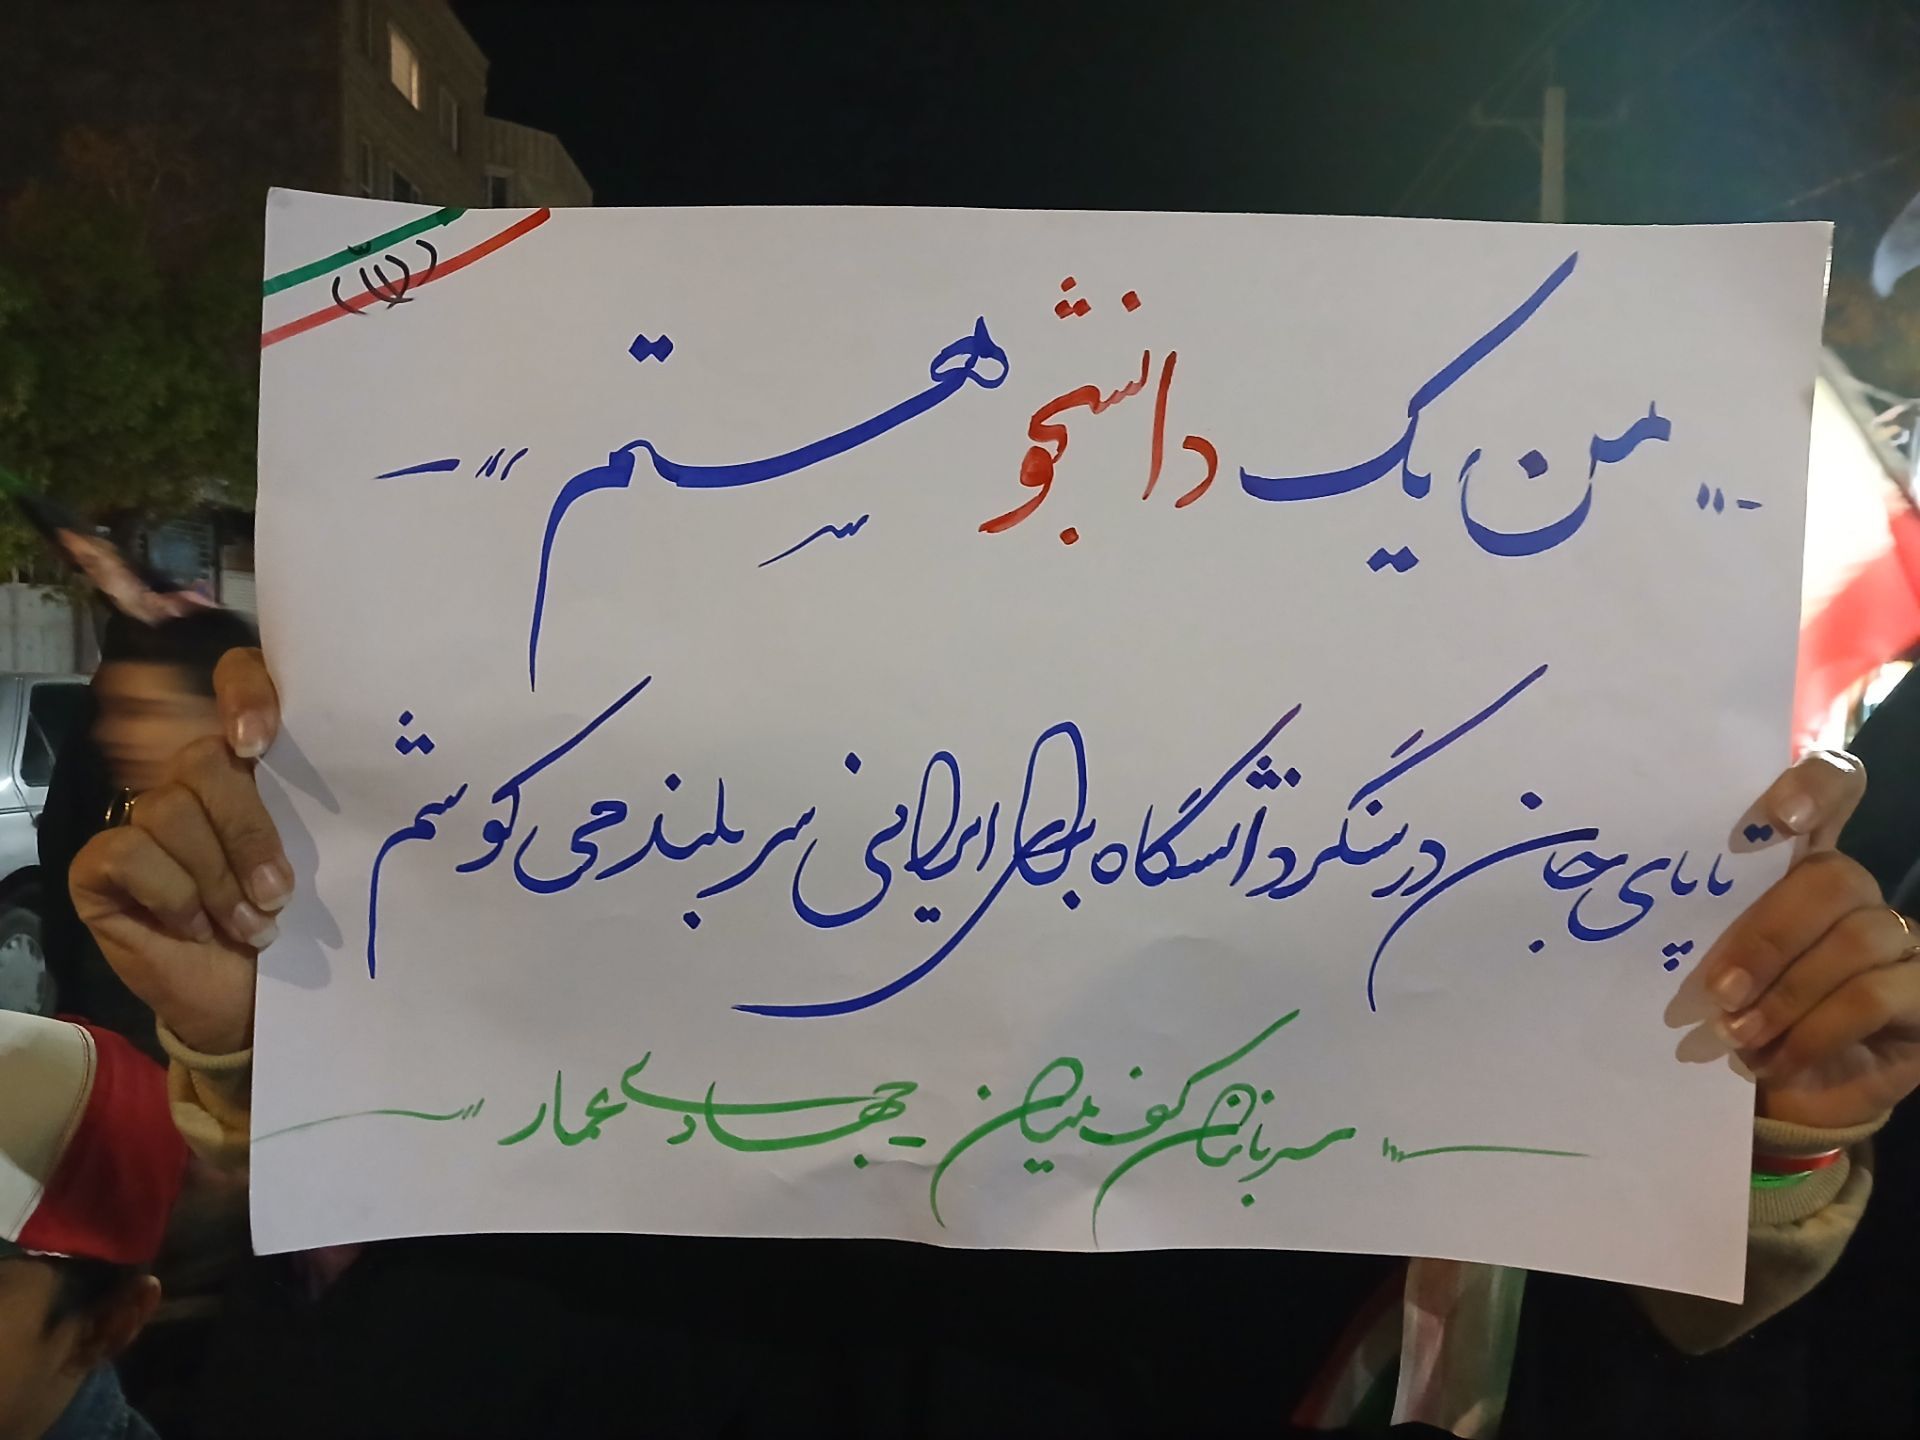 من یک دانشجو هستم
تا پای جان در سنگر دانشگاه برای ایرانی سربلند می کوشم
سربازان کف میدان - جهادی عمار